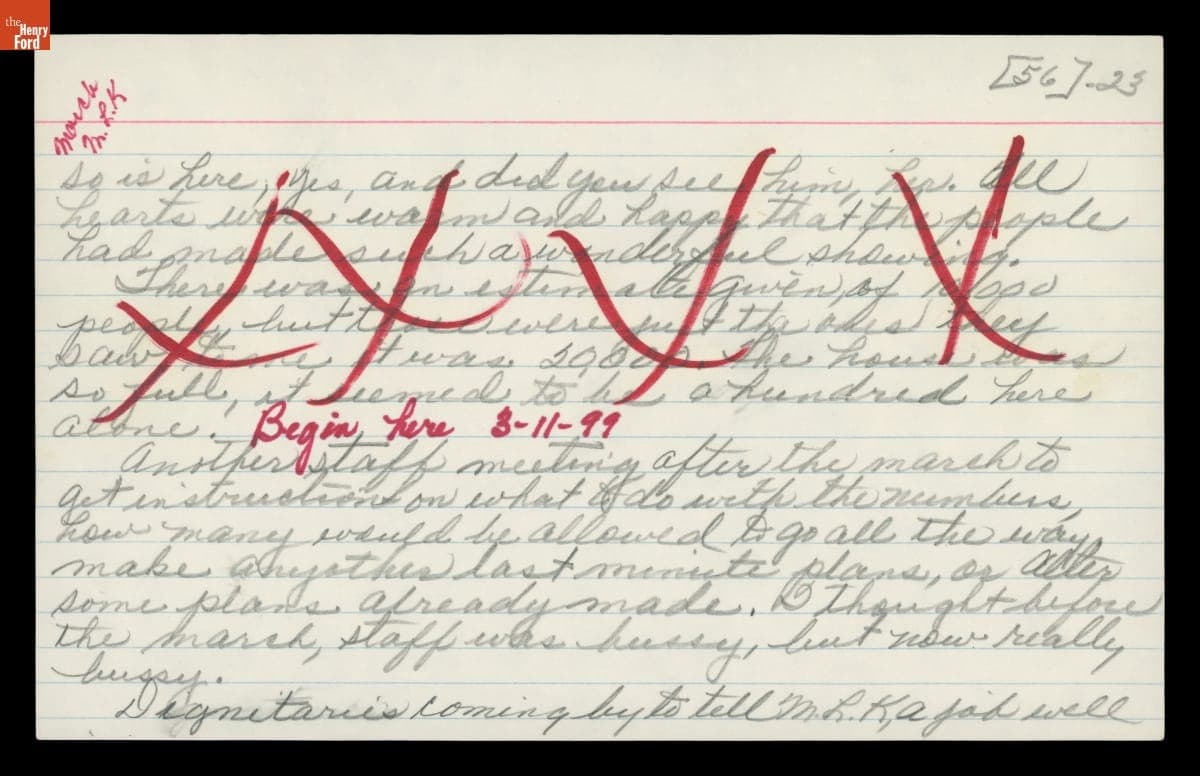 the
Henry
Ford
[56]-23
March
M.L.K
so is here, yes, and did you see him, her. All
hearts were warm and happy that the people
had made such a wonderful showing.
There was an estimate given, of 000
people, but those were just the ones they
saw, to me it was 20,000. The house was
so full, it seemed to be a hundred here
alone.
Begin here 3-11-99
Another staff meeting after the march to
get instructions on what to do with the numbers,
how many would be allowed to go all the way,
make anyother last minute plans, or alter
some plans already made. I thought before
the march, staff was bussy, but now really
bussy.
Dignitaries coming by to tell M.L.K, a job well